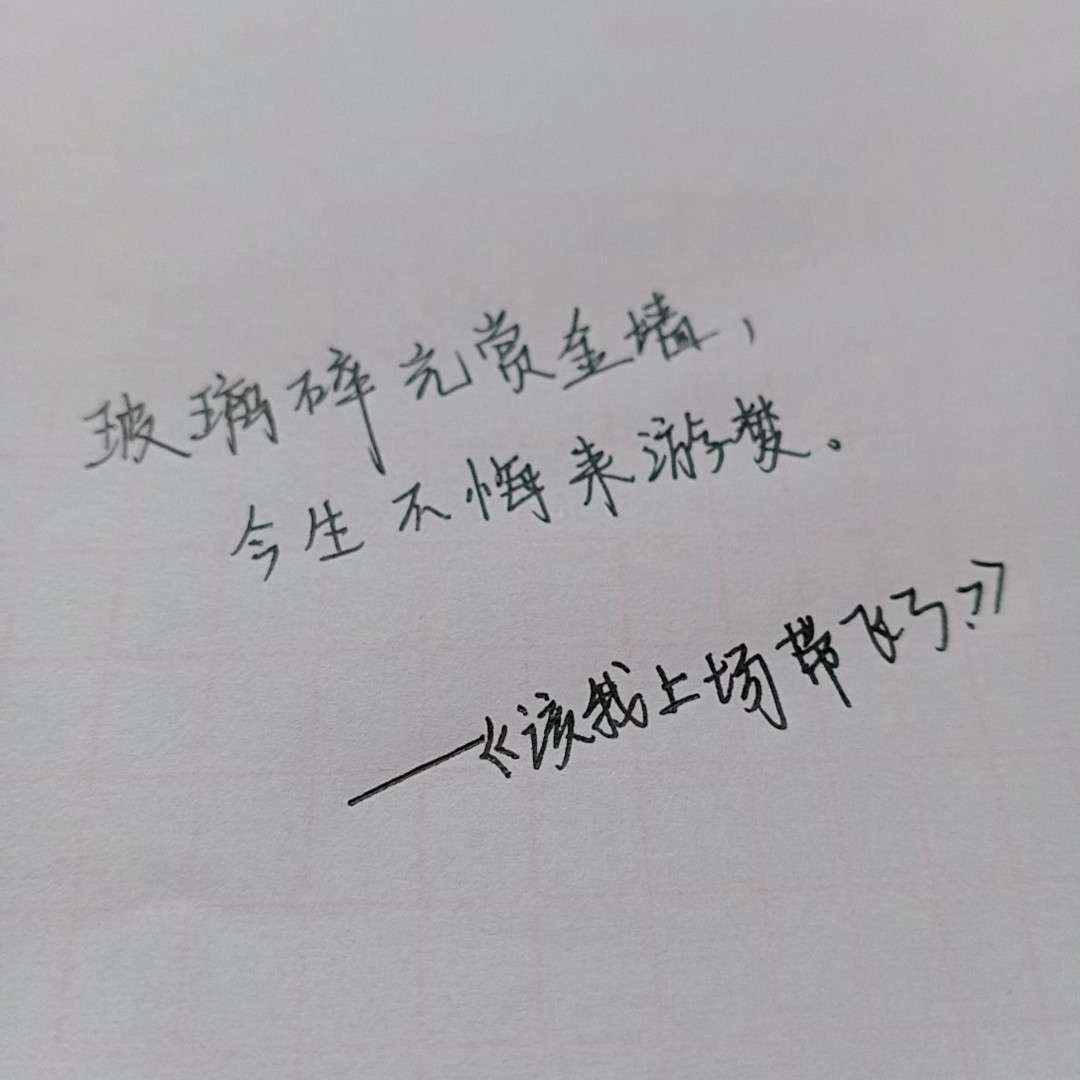 玻璃碎完赏金墙，
今生不悔来游樊。
——《该我上场带飞了？》